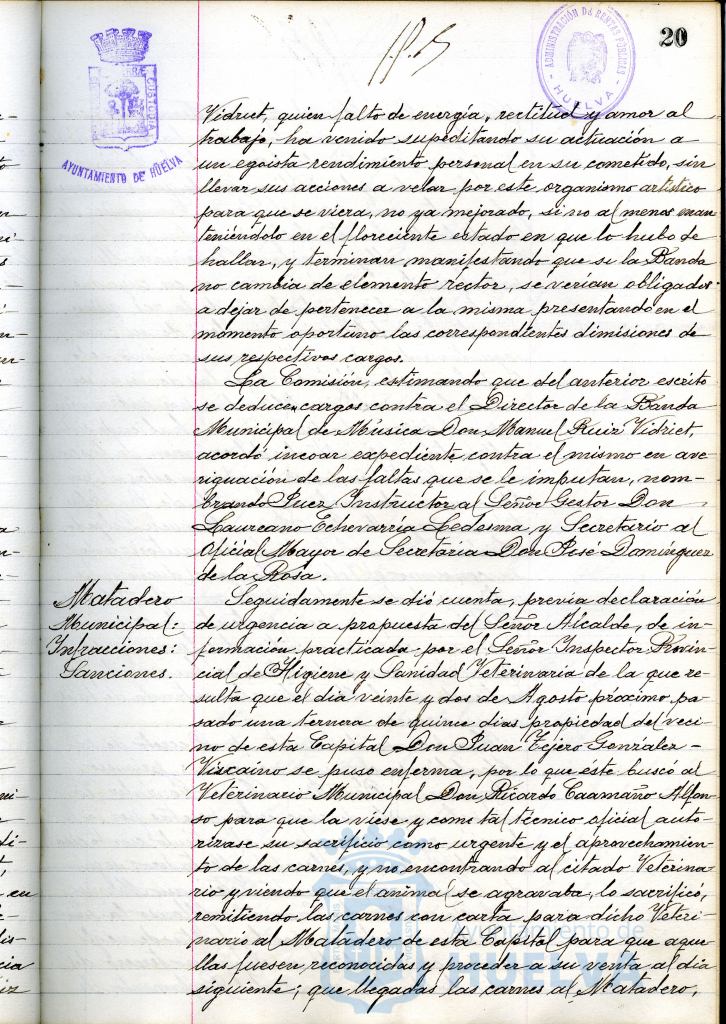 20
AYUNTAMIENTO DE HUELVA
ADMINISTRACIÓN DE RENTAS PÚBLICAS
HUELVA
Vidriet, quien falto de energía, rectitud y amor al
trabajo, ha venido supeditando su actuación a
un egoista rendimiento personal en su cometido, sin
llevar sus acciones a velar por este organismo artístico
para que se viera, no ya mejorado, si no al menos man
teniéndolo en el floreciente estado en que lo hubo de
hallar, y terminan manifestando que si la Banda
no cambia de elemento rector, se verían obligados
a dejar de pertenecer a la misma presentando en el
momento oportuno las correspondientes dimisiones de
sus respectivos cargos.
La Comisión, estimando que del anterior escrito
se deducen cargos contra el Director de la Banda
Municipal de Música Don Manuel Ruiz Vidriet,
acordó incoar expediente contra el mismo en ave
riguación de las faltas que se le imputan, nom-
brando Juez Instructor al Señor Gestor Don
Laureano Echevarría Ledesma, y Secretario al
Oficial Mayor de Secretaria Don José Domínguez
de la Rosa.
Matadero
Municipal:
Infracciones:
Sanciones.
Seguidamente se dió cuenta, previa declaración
de urgencia a propuesta del Señor Alcalde, de in-
formación practicada por el Señor Inspector Provin-
cial de Higiene y Sanidad Veterinaria de la que re-
sulta que el dia veinte y dos de Agosto próximo pa-
sado una ternera de quince dias propiedad del veci
no de esta Capital Don Juan Tejero Gonzalez-
Vizcaíno se puso enferma, por lo que éste buscó al
Veterinario Municipal Don Ricardo Caamaño Alfon-
so para que la viese y como tal técnico oficial auto-
rizase su sacrificio como urgente y el aprovechamien-
to de las carnes, y no encontrando al citado Veterina-
rio y viendo que el animal se agravaba, lo sacrificó,
remitiendo las carnes con carta para dicho Veteri-
nario al Matadero de esta Capital para que aque
llas fuesen reconocidas y proceder a su venta al dia
siguiente; que llegadas las carnes al Matadero,
Ayuntamiento de
HUELVA